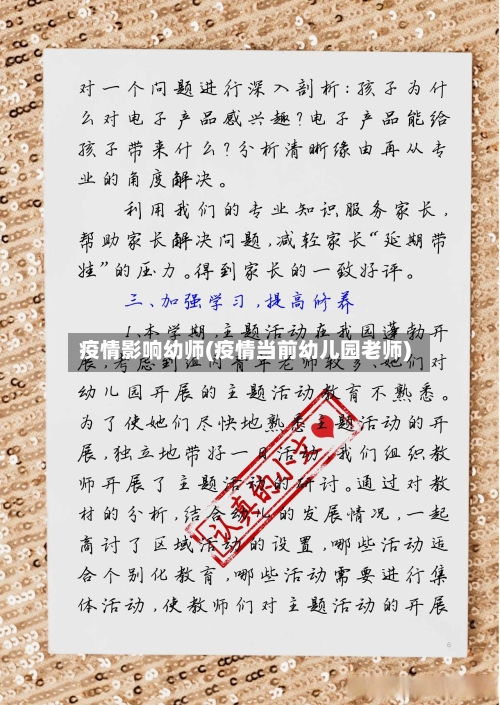 对一个问题进行深入剖析：孩子为什
么对电子产品感兴趣？电子产品能给
孩子带来什么？分析清晰缘由再从专
业的角度解决。
利用我们的专业知识服务家长，
帮助家长解决问题，减轻家长“延期带
娃”的压力。得到家长的一致好评。
三、加强学习，提高修养
1.本学期，主题活动在我园蓬勃开
疫情影响幼师(疫情当前幼儿园老师)
展，考虑到 青年老师较多、她们对
幼儿园开展的主题活动教育不熟悉。
为了使她们尽快地熟悉主题活动的开
展，独立地带好一日活动，我们组织教
师开展了主题活动的研讨。通过对教
材的分析，结合幼儿的发展情况，一起
商讨了区域活动的设置，哪些活动适
合个别化教育，哪些活动需要进行集
体活动，使教师们对主题活动的开展
认真的小主
6